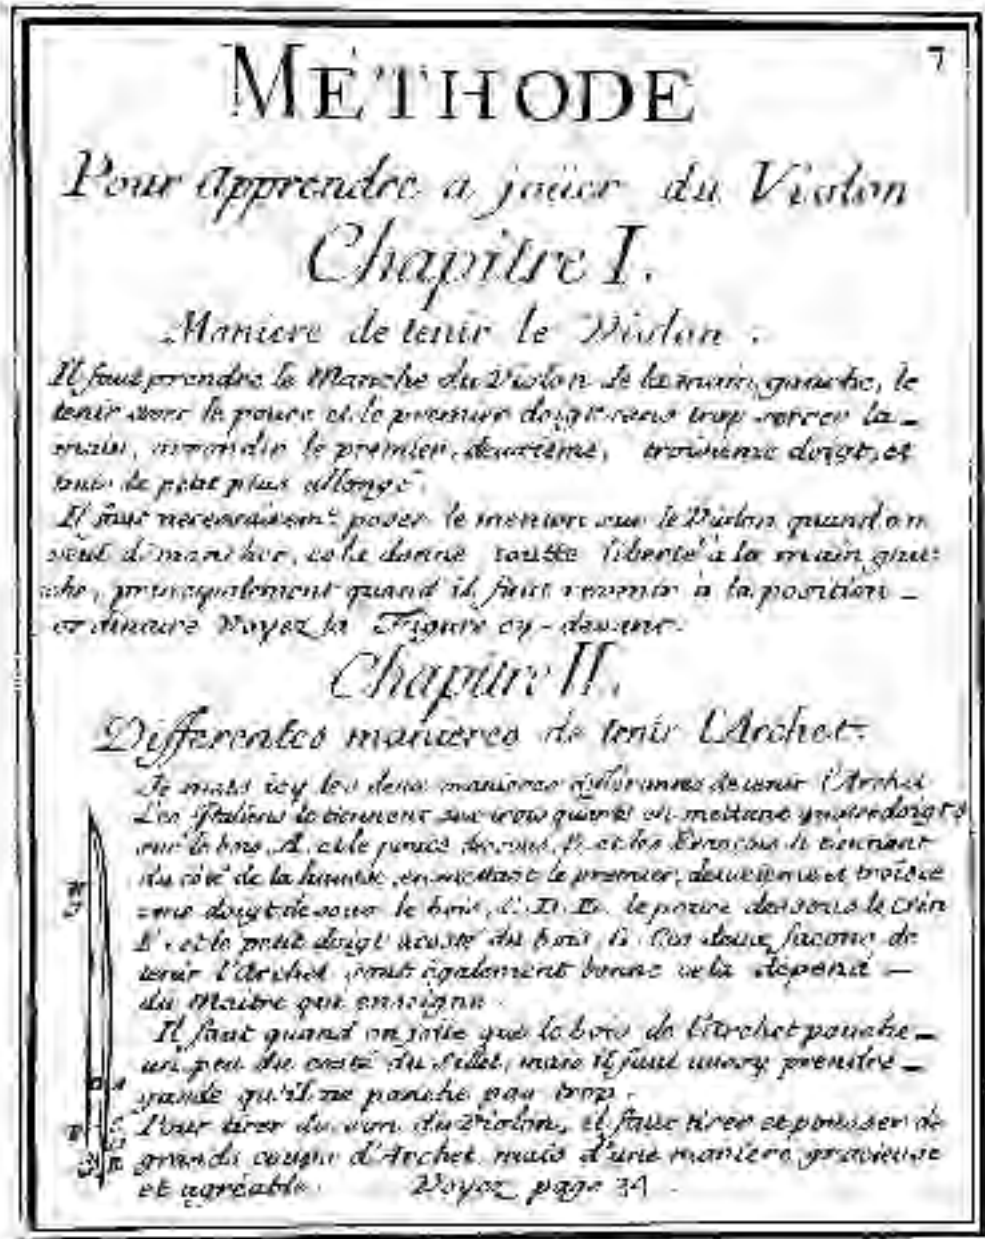 7
METHODE
Pour apprendre a joüer du Violon
Chapitre I.
Maniere de tenir le Violon.
Il faut prendre le Manche du Violon de la main gauche, le
tenir avec le pouce et le premier doigt sans trop serrer la
main, arrondir le premier, deuxieme, troisieme doigt, et
tenir le petit plus allongé.
Il faut necessairemt. poser le menton sur le Violon quand on
veut démancher, cela donne toutte liberté à la main gau=
che, principalement quand il faut revenir à la position
ordinaire Voyez la Figure cy-devant.
Chapitre II.
Differentes manieres de tenir l'Archet.
Je mets icy les deux manieres de tenir l'Archet
Les Italiens le tiennent aux trois quarts en mettant quatre doigts
sur le bois, A. et le pouce dessous, B. et les François le tiennent
du côté de la hausse, en mettant le premier, deuxieme et troisie
eme doigt dessus le bois, C. D. E. le pouce dessous le crin
F. et le petit doigt acosté du bois, G. Ces deux façons de
tenir l'Archet sont également bonne cela dépend
du Maitre qui enseigne.
Il faut quand on joüe que le bois de l'Archet panche
un peu du costé du sillet, mais il faut aussy prendre
garde qu'il ne panche pas trop.
Pour tirer du son du Violon, il faut tirer et pousser de
grands coups d'Archet, mais d'une maniere gracieuse
et agréable. Voyez page 34